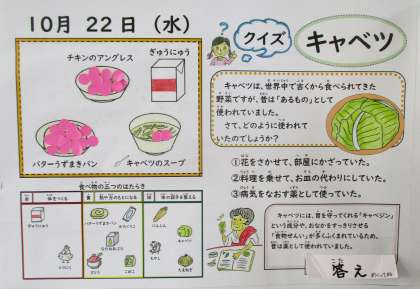 10月 22日 (水)
チキンのアングレス
ぎゅうにゅう
バターうずまきパン
キャベツのスープ
食べ物の三つのはたらき
クイズ
キャベツ
キャベツは、世界中で古くから食べられてきた
野菜ですが、昔は「あるもの」として
使われていました。
さて、どのように使われて
いたのでしょうか?
①花をさかせて、部屋にかざっていた。
②料理を乗せて、お皿の代わりにしていた。
③病気をなおす薬として使っていた。
キャベツには、胃を守ってくれる「キャベジン」
という成分や、おなかをすっきりさせる
「食物せんい」が多くふくまれているため、
昔は薬として使われていました。
答え